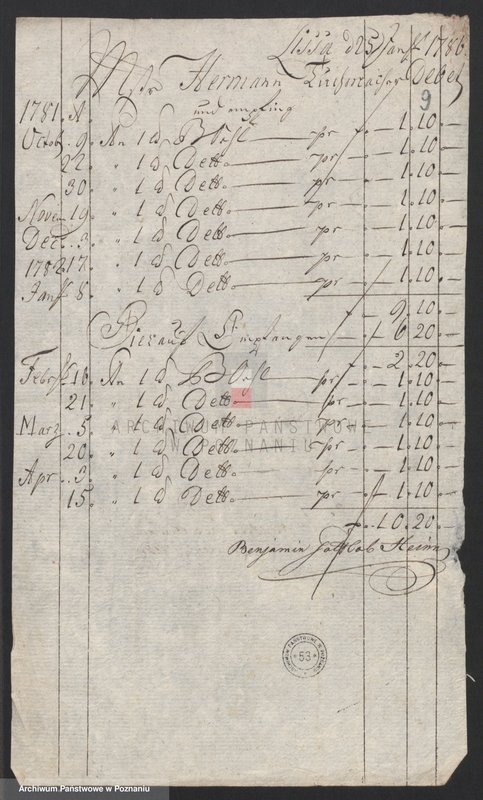 Lissa d 25 Janř 1786.
Mstr Hermann Tuchmacher Debet
9
1781. A.
und empfing
Octob. 9. An 1 d Bl — pr — 1.10.—
22. " 1 d Detto — pr — 1.10.—
30. " 1 d Detto — pr — 1.10.—
Novem 19. " 1 d Detto — pr — 1.10.—
Dec. 3. " 1 d Detto — pr — 1.10.—
1782 17. " 1 d Detto — pr — 1.10.—
Janř 8. " 1 d Detto — pr — 1.10.—
9.10.—
Hierauf Empfangen — 6.20.—
2.20.—
Febr 16. An 1 d — pr — 1.10.—
21. " 1 d Detto — pr — 1.10.—
Marz. 5. " 1 d Detto — pr — 1.10.—
20. " 1 d Detto — pr — 1.10.—
Apr. 3. " 1 d Detto — pr — 1.10.—
15. " 1 d Detto — pr — 1.10.—
10.20.—
Benjamin Gottlob Heinn
ARCHIWUM PAŃSTWOWE
W POZNANIU
53
Archiwum Państwowe w Poznaniu